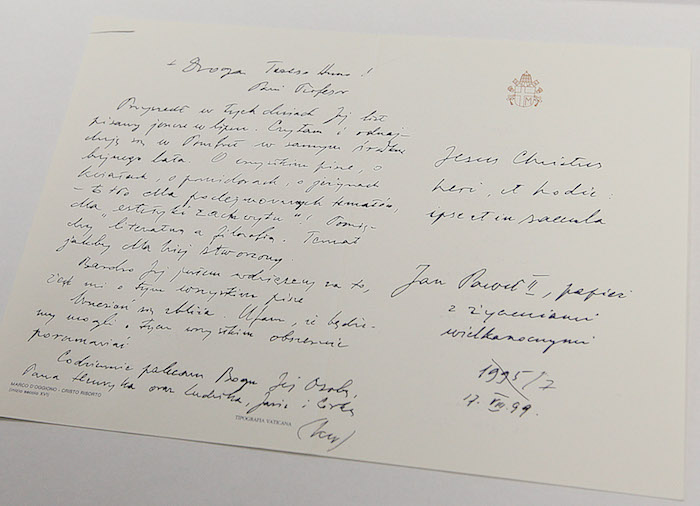 + Droga Tereso Anno!
Pani Profesor
Przyszedł w tych dniach Jej list
pisany jeszcze w lipcu. Czytam i odnaj-
duję się w samym środku
bujnego lata. O wszystkim pisze, o
kwiatach, o pomidorach, o jeżynach
– to tło dla podejmowanych tematów,
dla „estetyki zachwytu"! Pomię-
dzy literaturą a filozofią. Temat
jakby dla Niej stworzony.
Bardzo Jej jestem wdzięczny za to,
że mi o tym wszystkim pisze
Wrzesień się zbliża. Ufam, że będzie-
my mogli o tym wszystkim obszernie
porozmawiać
Codziennie polecam Bogu Jej Osobę,
Pana Henryka oraz Ludwika, Jasia i
MARCO D'OGGIONO - CRISTO RISORTO
(inizio secolo XVI)
TIPOGRAFIA VATICANA
Jesus Christus
heri, et hodie:
ipse et in saecula
Jan Paweł II, papież
z życzeniami
wielkanocnymi
1995/7
17. VIII. 99.